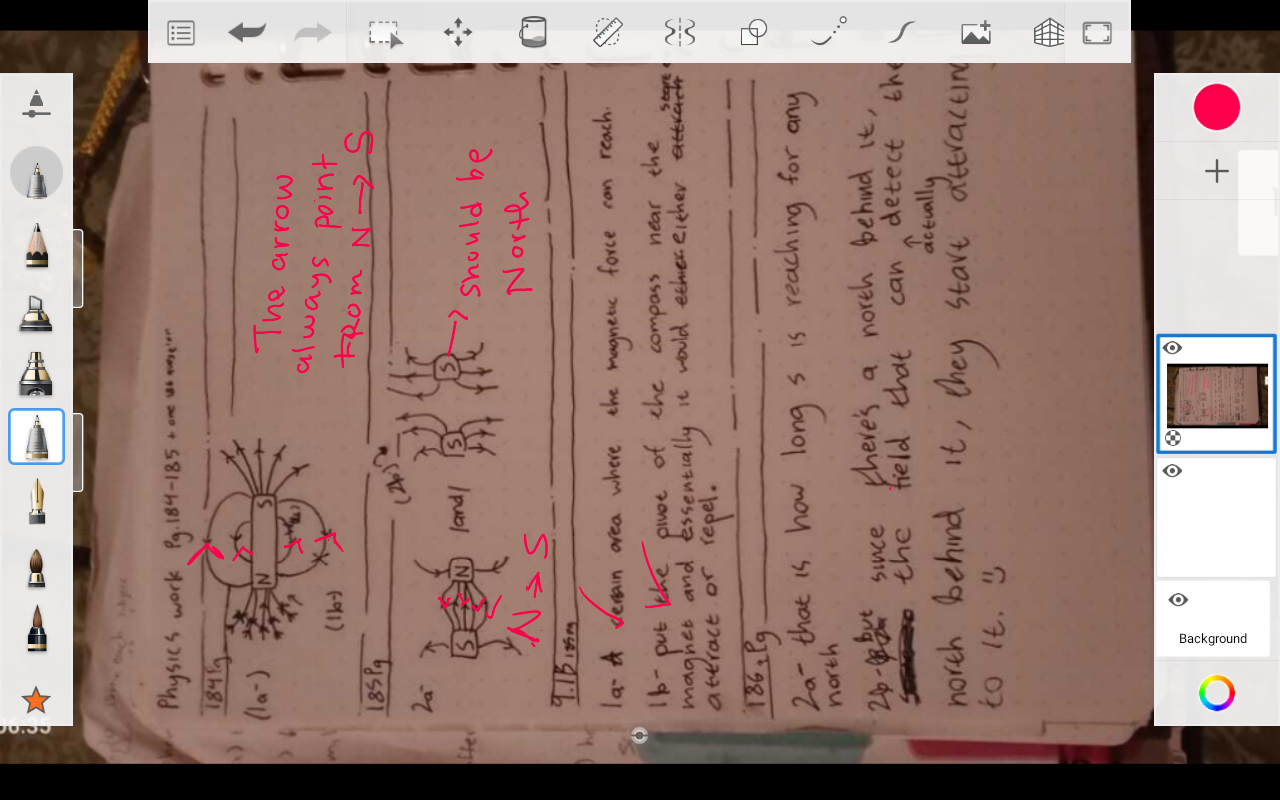 Physics work Pg.184-185 + one
184 Pg
(1a-)
N S
(1b-)
The arrow
always point
from N → S
185 Pg
2a-
S N
land/
(2b)
S S
→ Should be
North
N → S
9.1B
1a- A area where the magnetic force can reach.
1b- put the pivot of the compass near the
magnet and essentially it would either either attract
attract or repel.
186, Pg
2a- that is how long S is reaching for any
north
2b- but since there's a north behind it,
the field that can detect the
actually
north behind it, they start attracting
to it. :)
06:35
Background